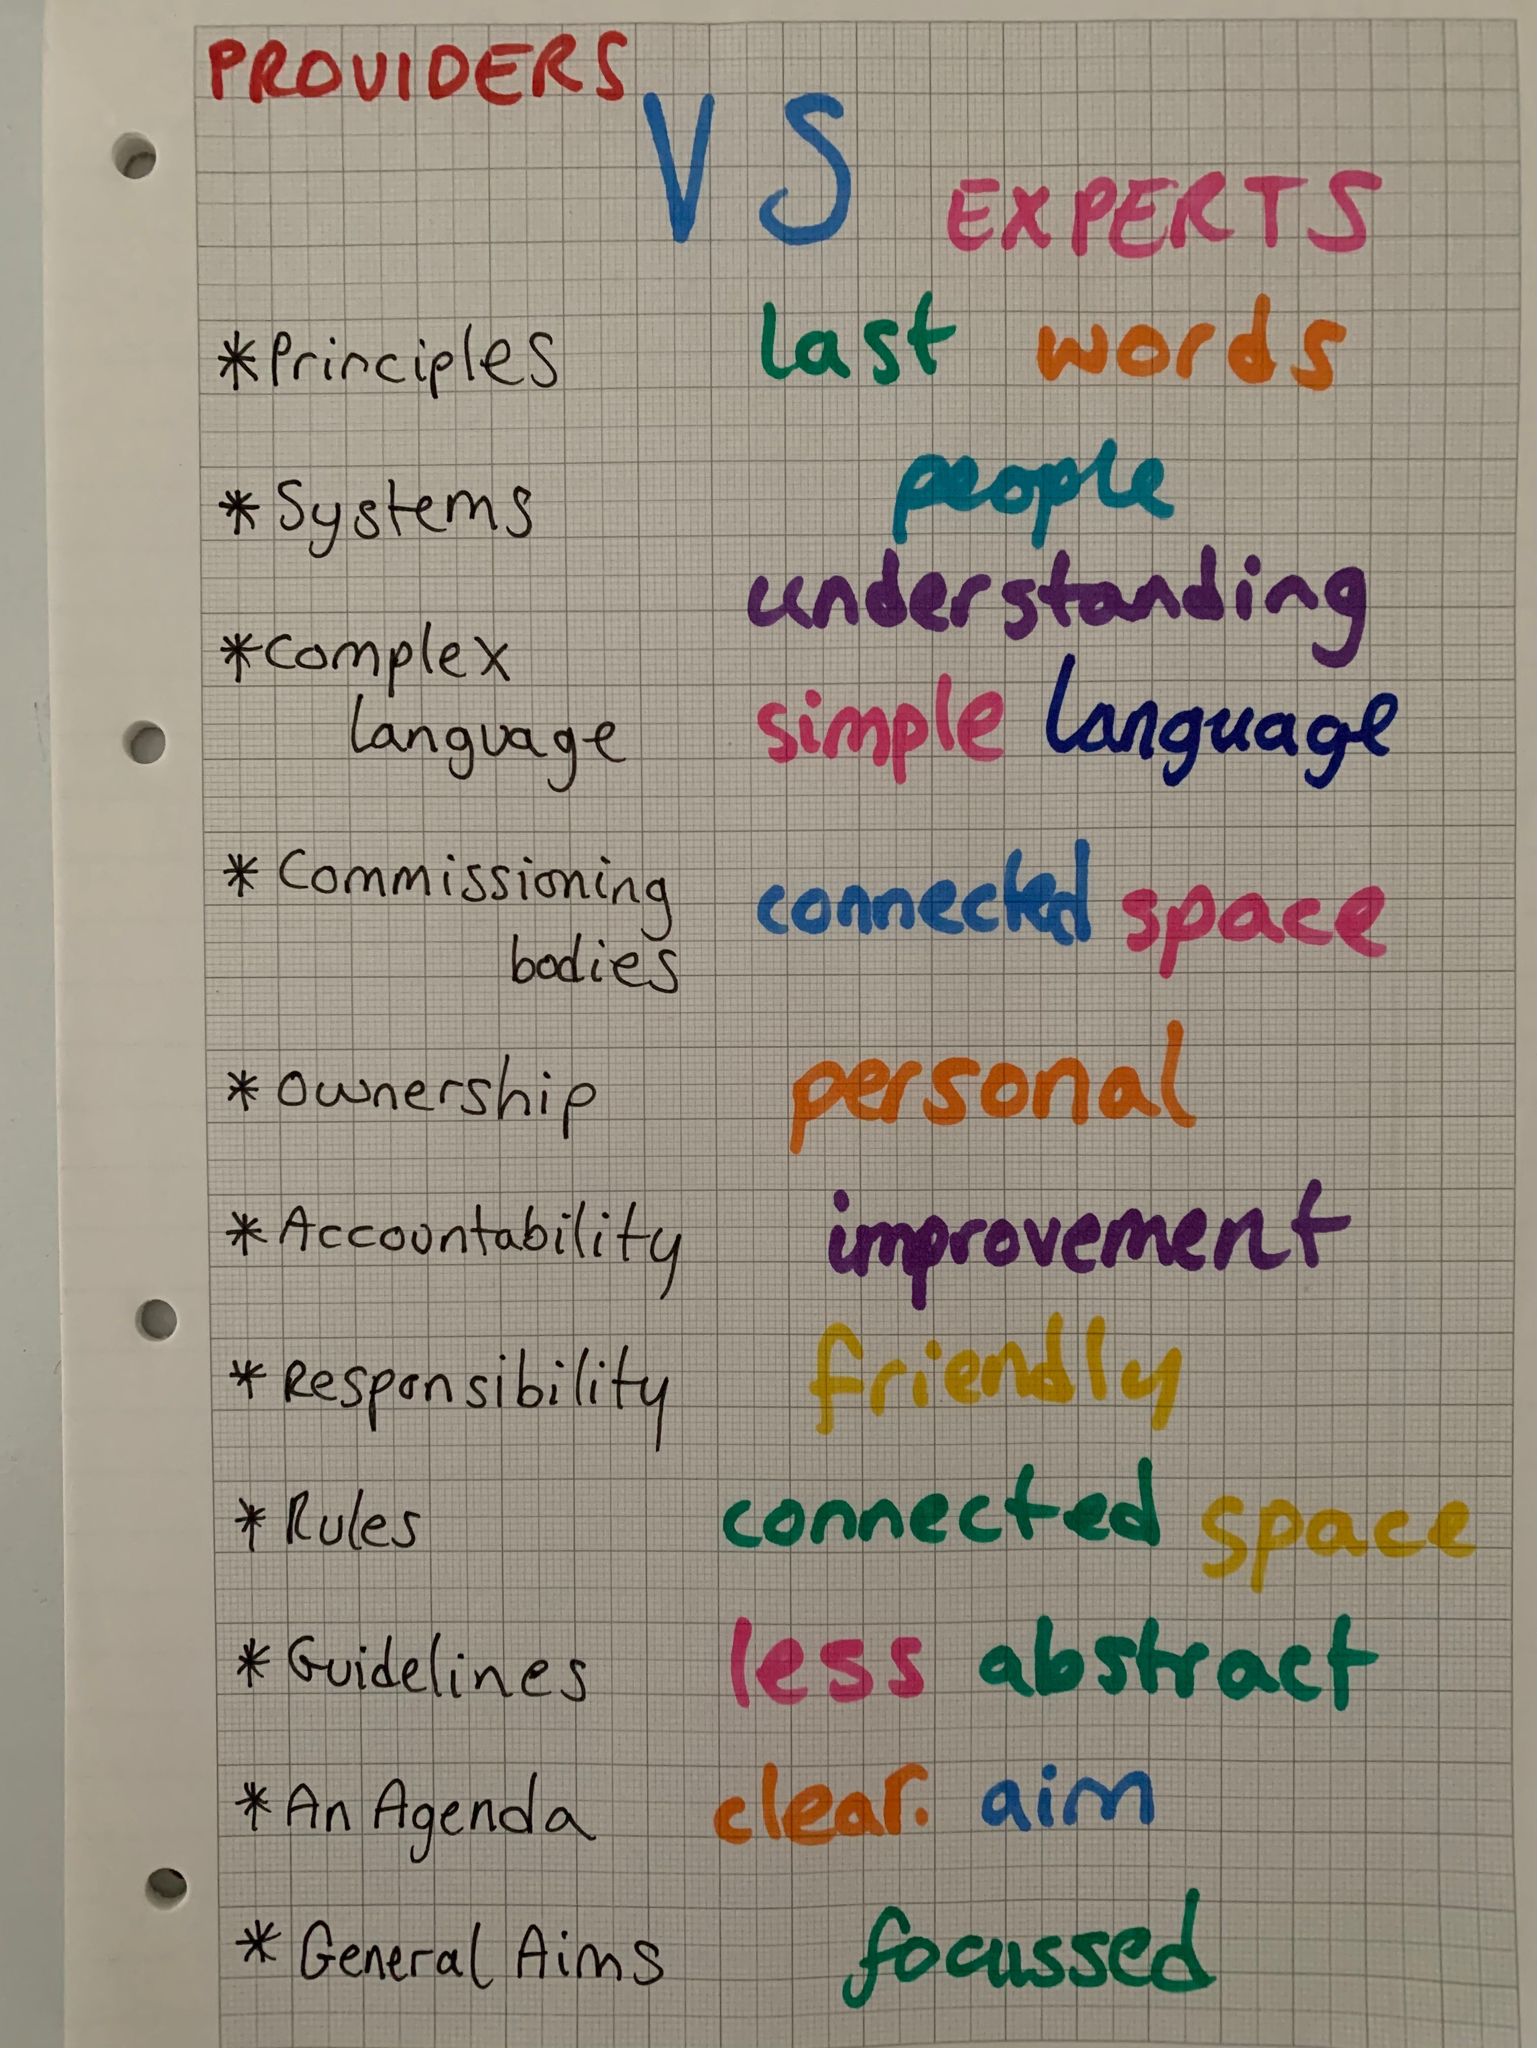 PROVIDERS
VS
EXPERTS
*Principles last words
*Systems people
understanding
*Complex
language simple language
*Commissioning
bodies connected space
*Ownership personal
*Accountability improvement
*Responsibility friendly
*Rules connected space
*Guidelines less abstract
*An Agenda clear. aim
*General Aims focussed